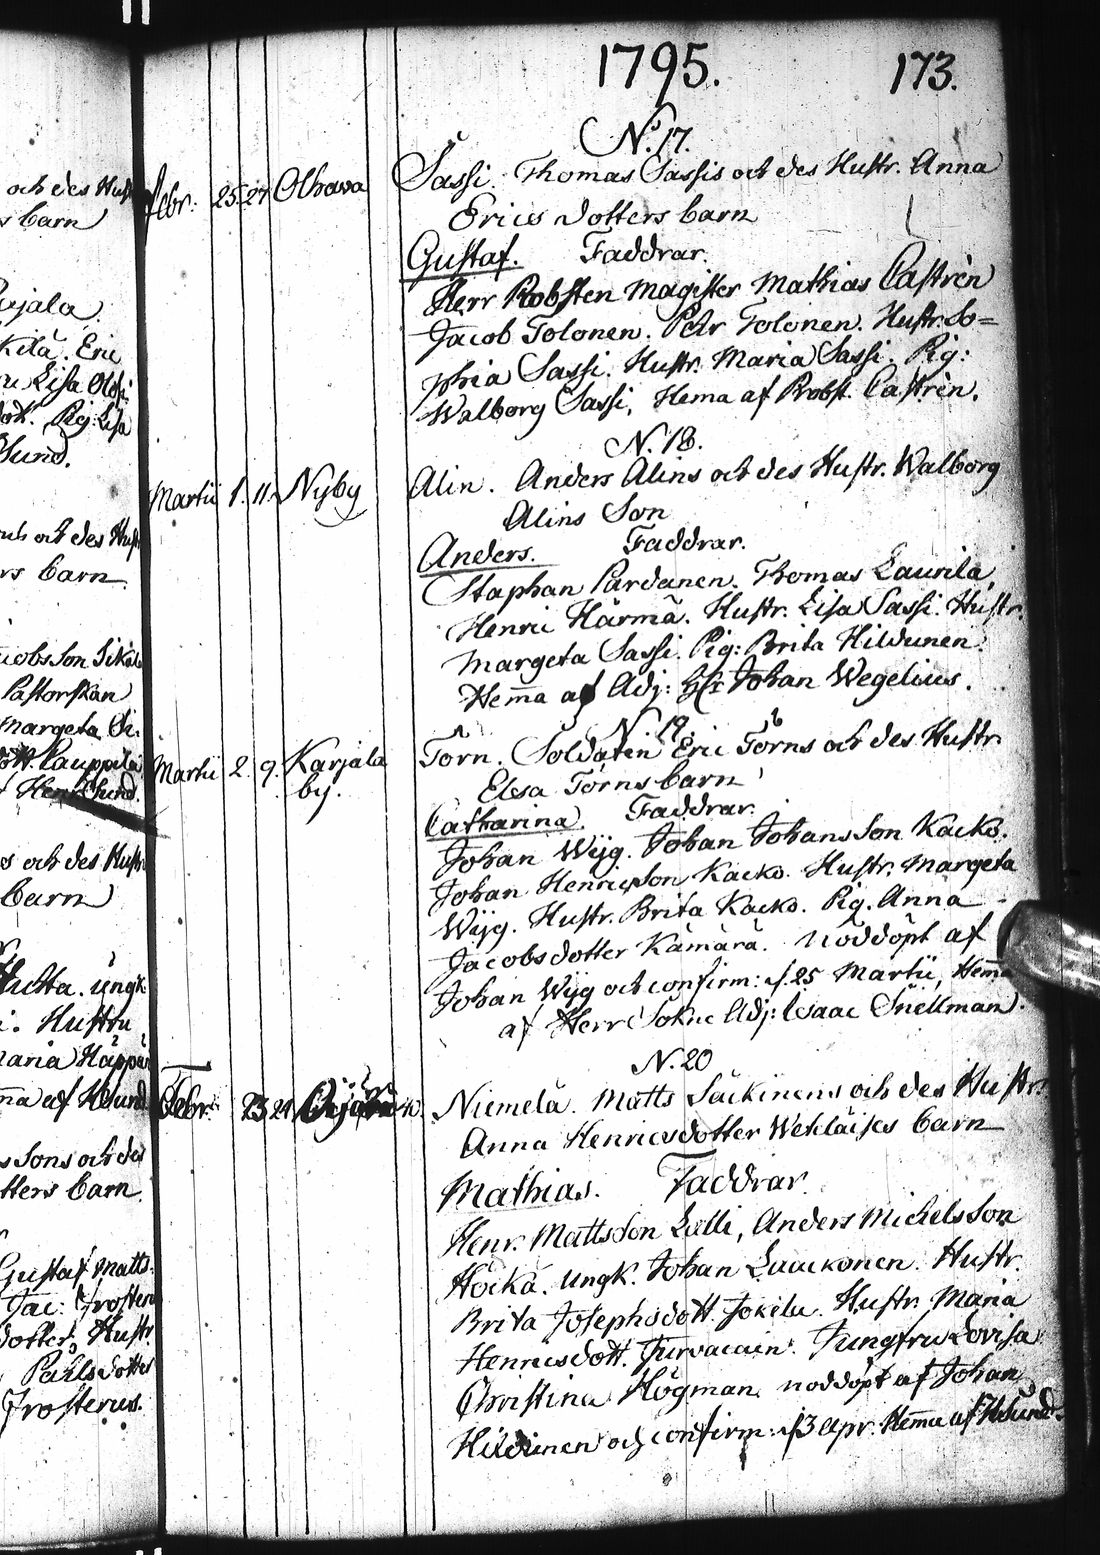 1795. 173.
N. 17.
Febr: 25. 27 Olhava Sassi. Thomas Sassis och des Hustr. Anna
Erics dotters barn
Gustaf. Faddrar.
Herr Probsten Magister Mathias Castrèn
Jacob Tolonen. Petr Tolonen. Hustr. So=
phia Sassi. Hustr. Maria Sassi. Pig:
Walborg Sassi. Hema af Probst. Castrèn.
N. 18.
Martii 1. 11. Nyby Alin. Anders Alins och des Hustr. Walborg
Alins Son
Anders. Faddrar.
Staphan Pardanen. Thomas Laurila,
Henric Härmä. Hustr. Lisa Sassi. Hustr.
Margeta Sassi. Pig: Brita Hildunen.
Hem̄a af Adj: Hr Johan Wegelius.
N. 19.
Martii 2. 9. Karjala by. Törn. Soldaten Eric Törns och des Hustr.
Elsa Törns barn
Catharina. Faddrar.
Johan Wijg. Johan Johansson Kacko.
Johan Henricsson Kacko. Hustr. Margeta
Wijg. Hustr. Brita Kacko. Pig. Anna
Jacobsdotter Kämärä. Nöddöpt af
Johan Wijg och confirm: d. 25 Martii, Hem̄a
af Herr Sokne Adj: Isaac Snellman.
N. 20
Febr. 23 24 Niemelä. Matts Säckinens och des Hustr.
Anna Henricsdotter barn
Mathias. Faddrar.
Henr. Mattsson Lalli, Anders Michelsson
Höckä. Ungk. Johan Laackonen. Hustr.
Brita Josephsdott. Jokela. Hustr. Maria
Henricsdott. Jungfru Lovisa
Christina Högman. nöddöpt af Johan
Hildunen och confirm: d. 3 Apr. Hem̄a af HSund.
och des Hustr
s barn
Kilä. Eric
Lisa
Pig: Lisa
HSund.
och des Hust
rs barn
Pastorskan
Margeta
och des Hustr
barn
ungk.
Hustru
Maria
af HSund.
Sons och des
tters barn
Gustaf Matts-
dotter, Hustr.
Pahlsdotter
Frosterus.